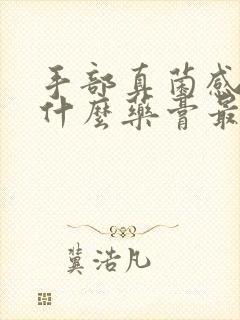 手部真菌感
什麼藥膏最
龔浩凡